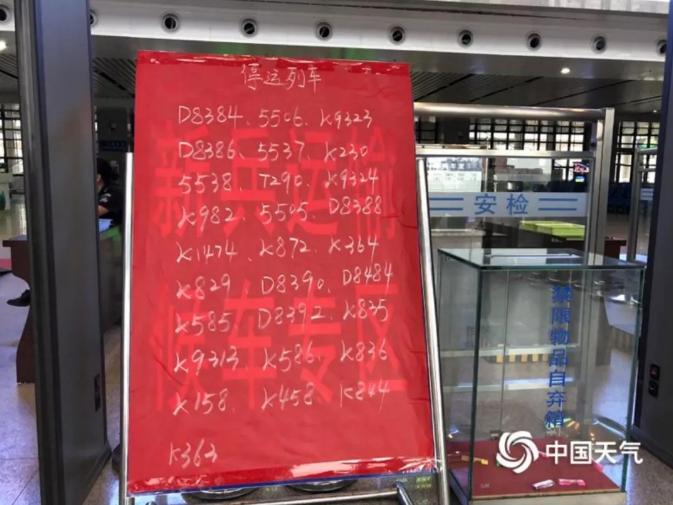 停运列车
D8384、5506、K9323
D8386、5537、K230
5538、T290、K9324
K982、5505、D8388
K1474、K872、K364
K829、D8390、D8484
K585、D8392、K835
K9313、K586、K836
K158、K458、K844
K363
新兵运输
候车专区
安检
禁限物品自弃箱
中国天气